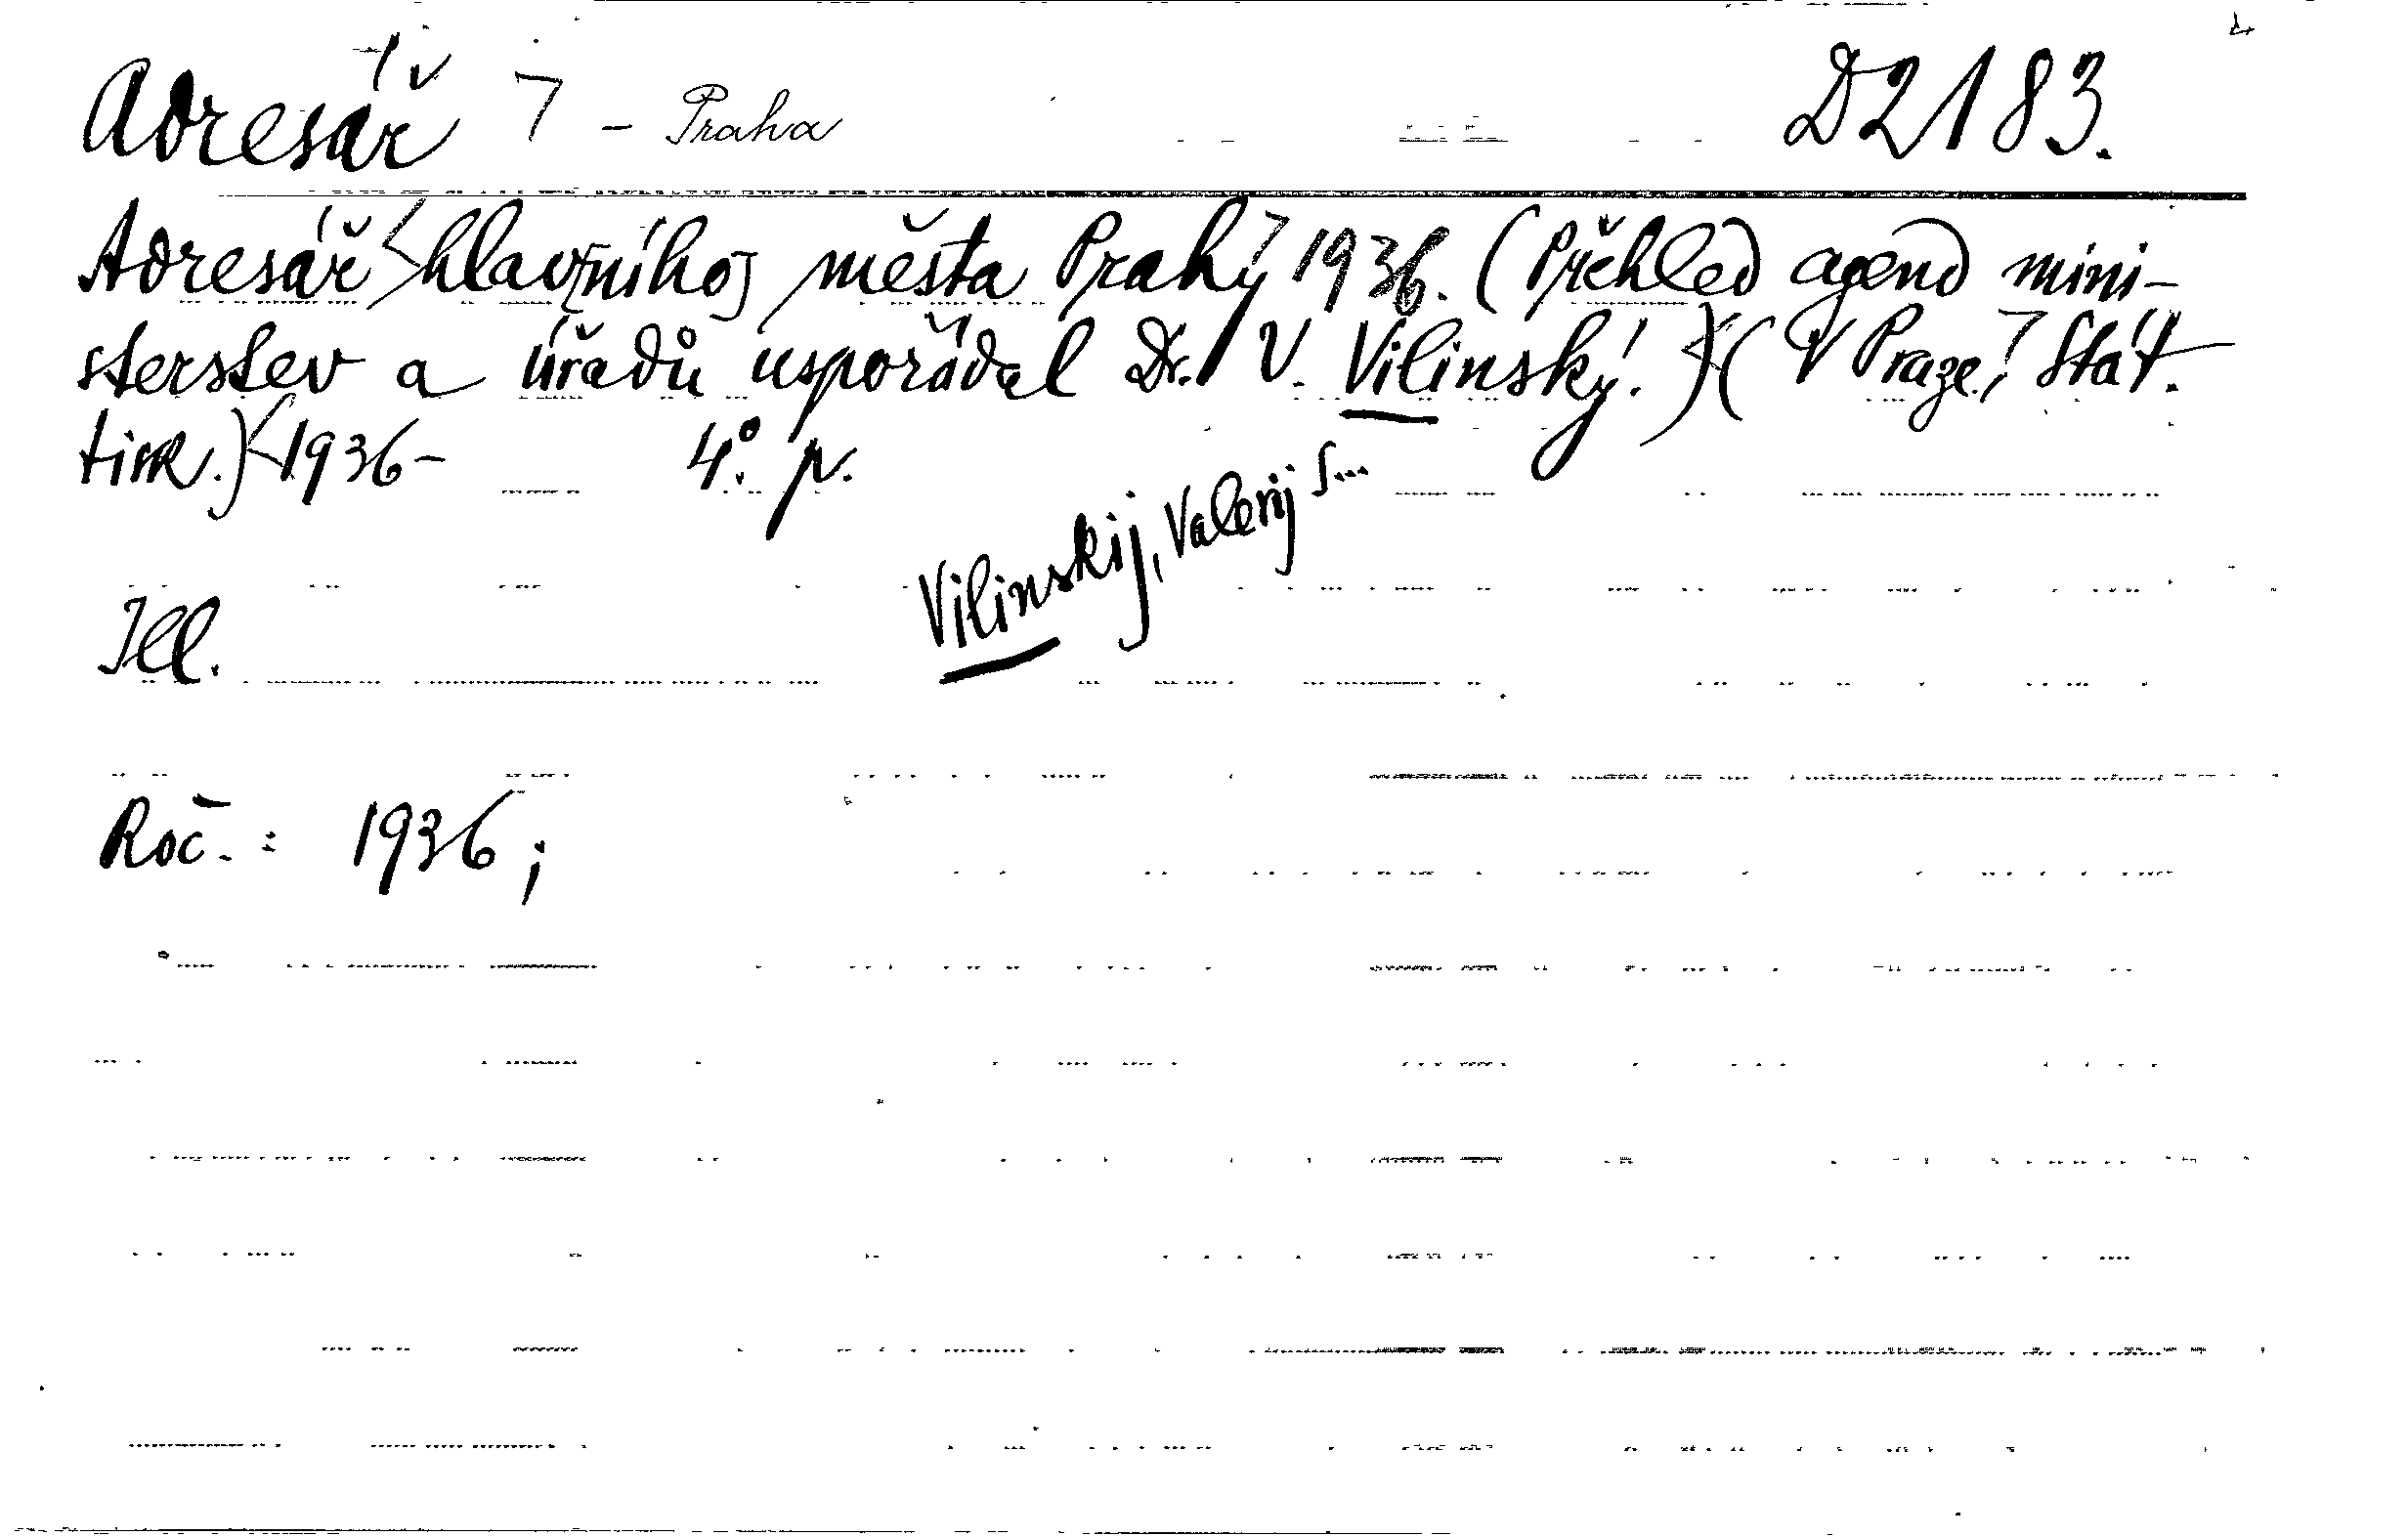 Adresář - Praha D2183.
Adresář hlavního města Prahy 1936. (Přehled agend mini-
sterstev a úřadů uspořádal Dr. V. Vilinský.) (V Praze, Stát.
tisk.) 1936- 4°. p.
Vilinskij, Valerij S...
Ill.
Roč. : 1936 ;